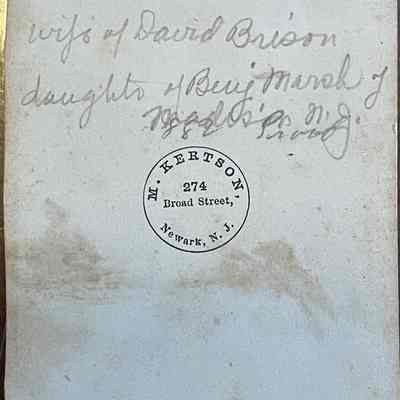 wife of David Brison
daughter of Benj Marsh of
Madison N. J.
M. KERTSON,
274
Broad Street,
Newark, N. J.